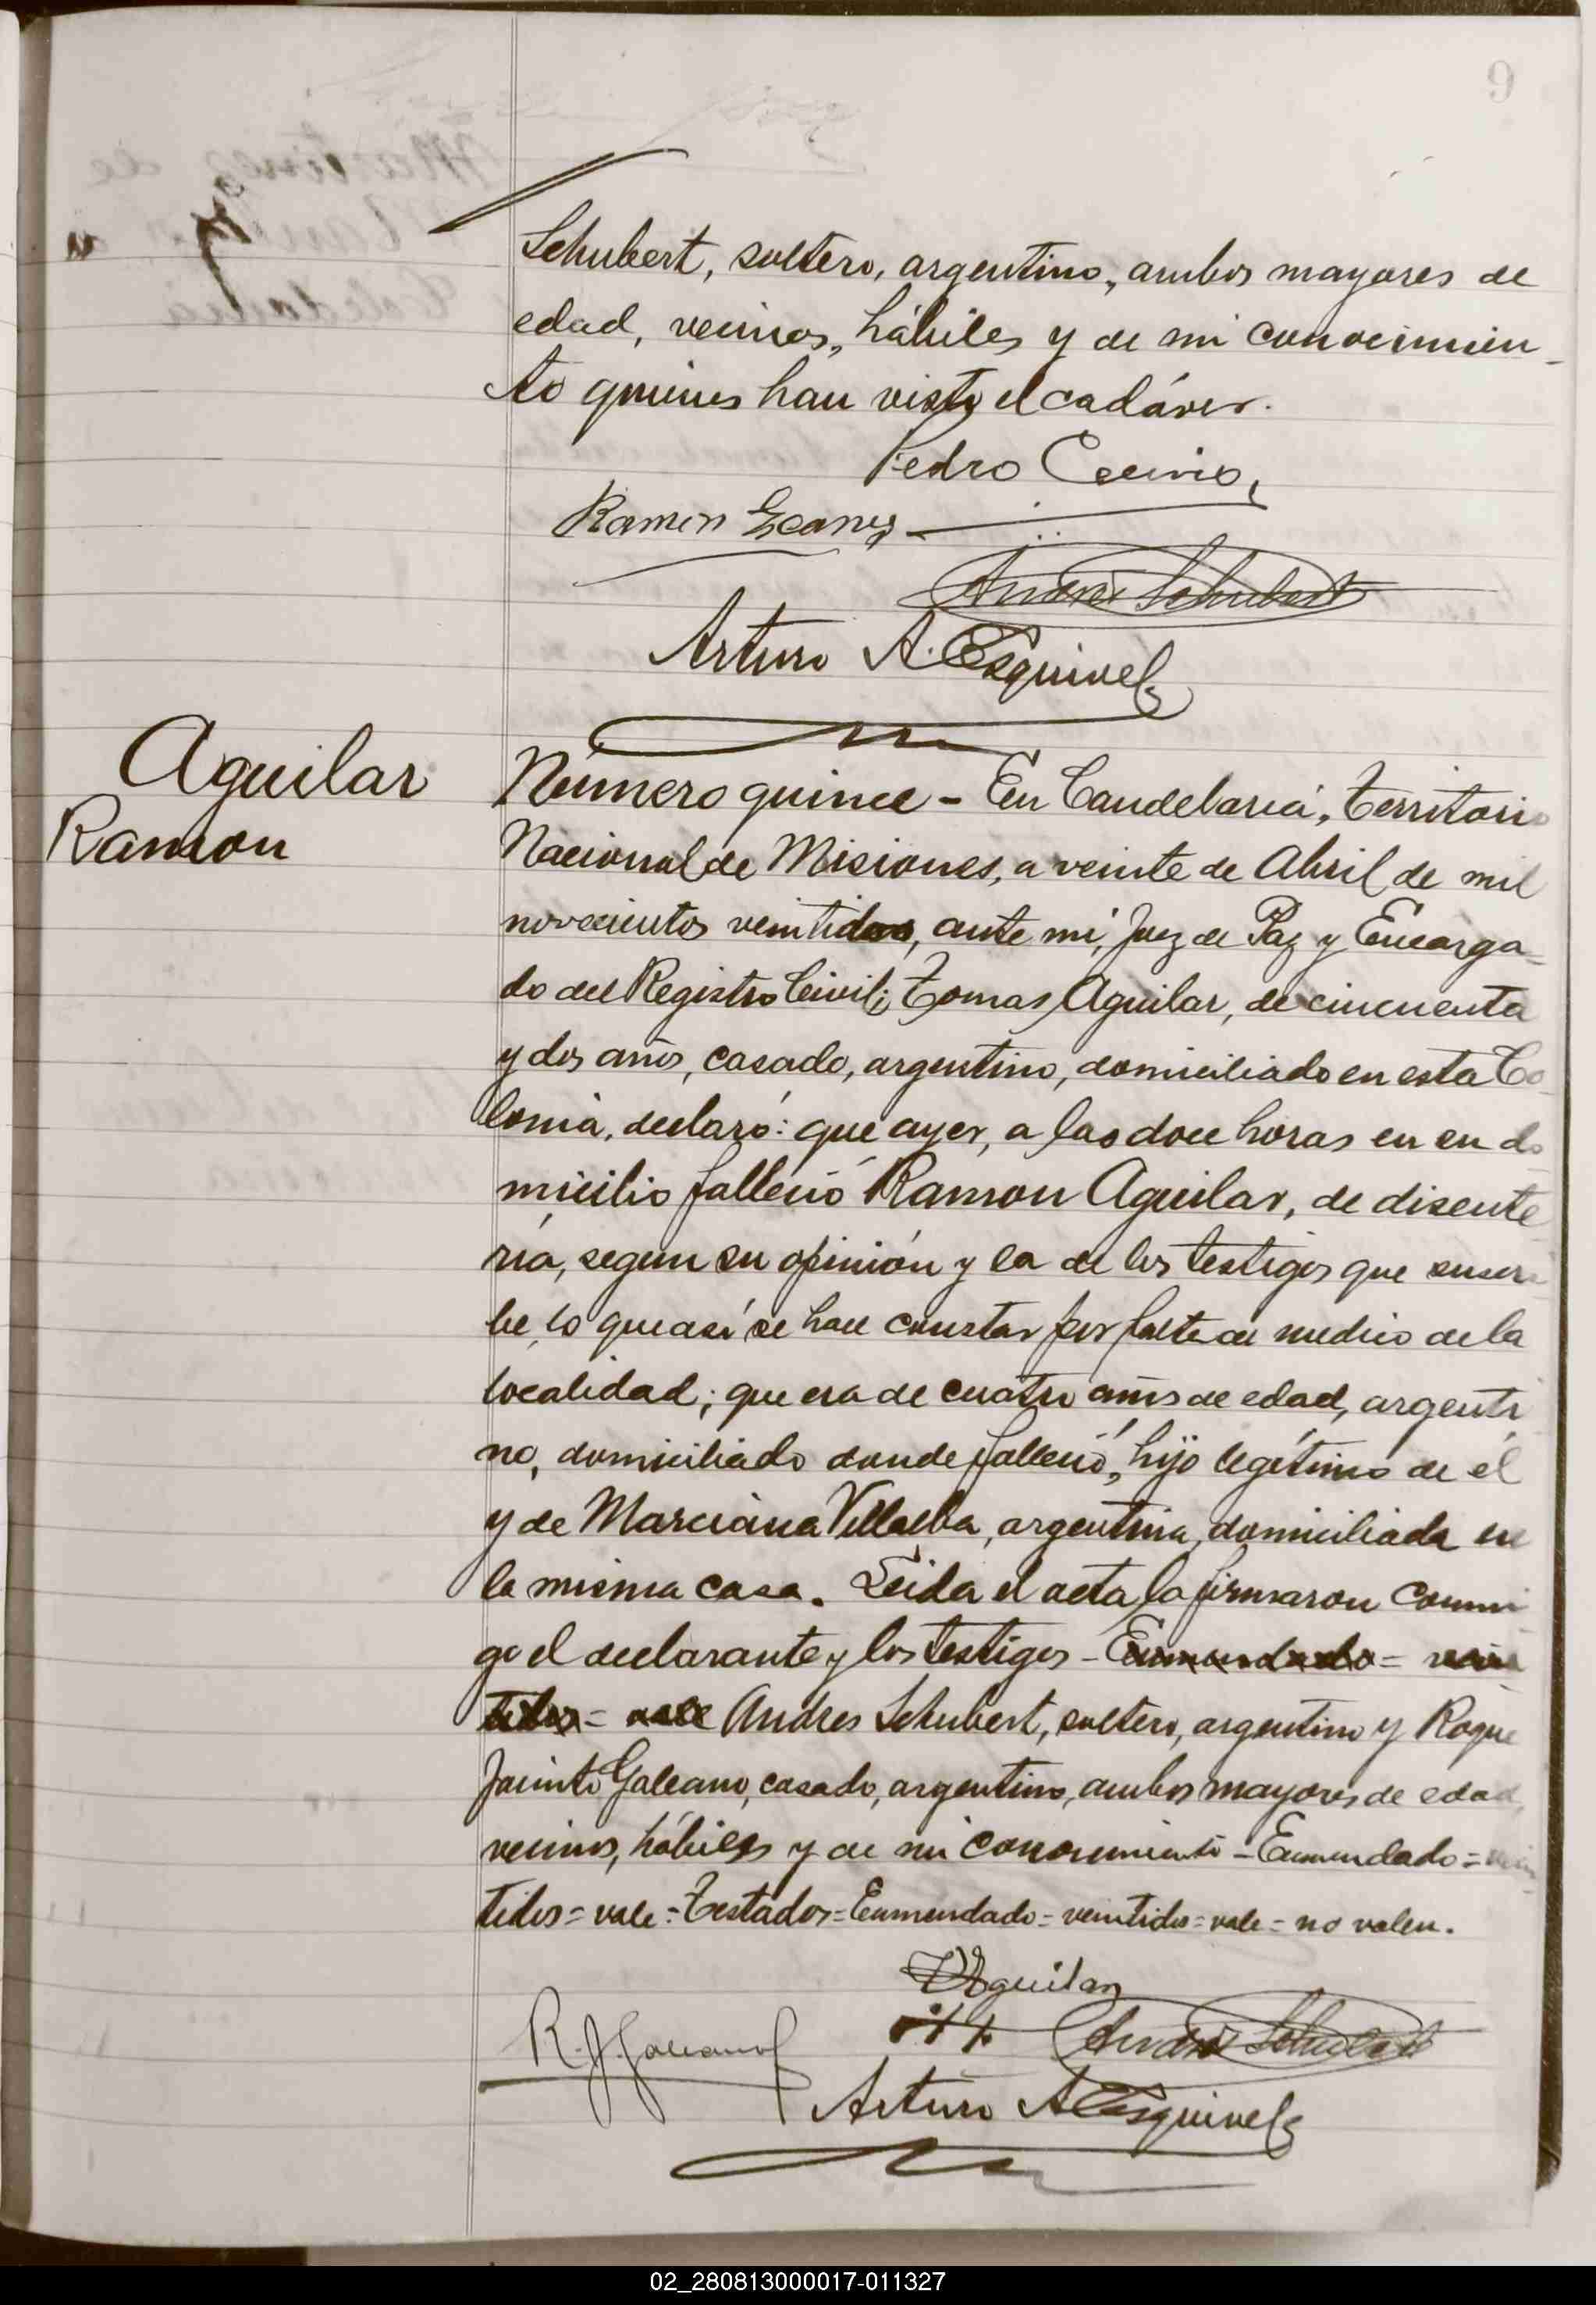 9
Schubert, soltero, argentino, ambos mayores de
edad, vecinos, hábiles y de mi conocimien-
to quienes han visto el cadáver.
Pedro
Ramon
Andrés Schubert
Arturo A. Esquivel
Aguilar
Ramon
Número quince - En Candelaria, Territorio
Nacional de Misiones, a veinte de Abril de mil
novecientos veintidos, ante mí, Juez de Paz y Encarga-
do del Registro Civil; Tomas Aguilar, de cincuenta
y dos años, casado, argentino, domiciliado en esta Co-
lonia, declaró: que ayer, a las doce horas en su do
micilio falleció Ramon Aguilar, de disente
ría, segun su opinión y la de los testigos que suscri
be, lo que así se hace constar por falta de medico de la
localidad; que era de cuatro años de edad, argenti
no, domiciliado donde falleció, hijo legítimo de él
y de Marciana Villalba, argentina, domiciliada en
la misma casa. Leida el acta la firmaron conmi
go el declarante y los testigos - Enmendado = vein
tidos = vale Andres Schubert, soltero, argentino y Roque
Jacinto Galeano, casado, argentino, ambos mayores de edad,
vecinos, hábiles y de mi conocimiento - Enmendado = vein-
tidos = vale = Testados = Enmendado = veintidos = vale = no valen.
T Aguilar
R. J. Galeano
Andrés Schubert
Arturo A Esquivel
02_280813000017-011327